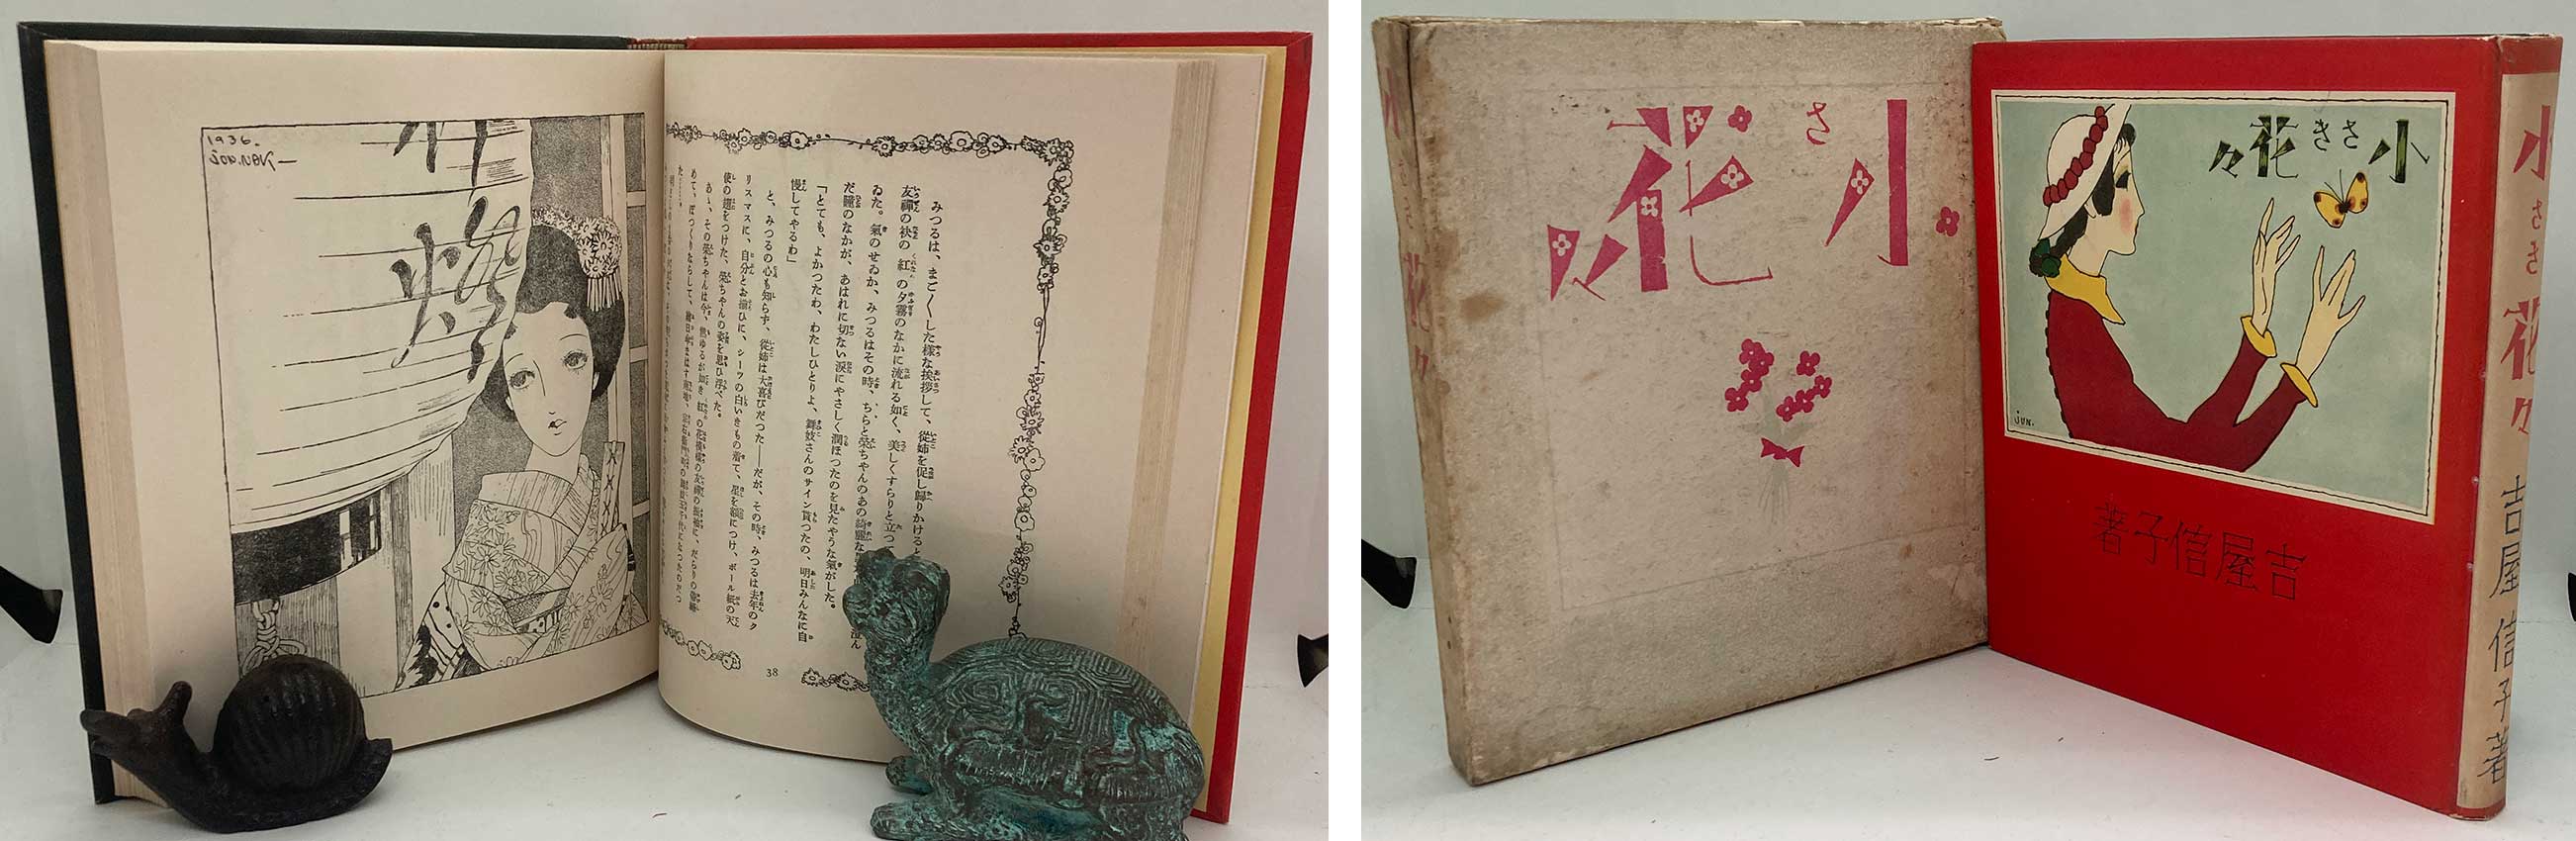 1936.
JUN.NAK—
祥
みつるは、まご〱した様な挨拶して、從姉を促し歸りかけると
友禪の袂の紅の夕霧のなかに流れる如く、美しくすらりと立つ
ゐた。氣のせゐか、みつるはその時、ちらと榮ちやんのあの綺麗な
だ瞳のなかが、あはれに切ない涙にやさしく潤ほつたのを見たやうな氣がした。
「とても、よかつたわ、わたしひとりよ、舞妓さんのサイン貰つたの、明日みんなに自
慢してやるわ」
と、みつるの心も知らず、從姉は大喜びだつた——だが、その時、みつるは去年のク
リスマスに、自分とお揃ひに、シーツの白いきもの着て、星を額につけ、ボール紙の天
使の翅をつけた、榮ちやんの姿を思ひ浮べた。
あゝ、その榮ちやんは今、
38
小さき花々
小さき花々
JUN.
吉屋信子著
小さき花々 吉屋信子著